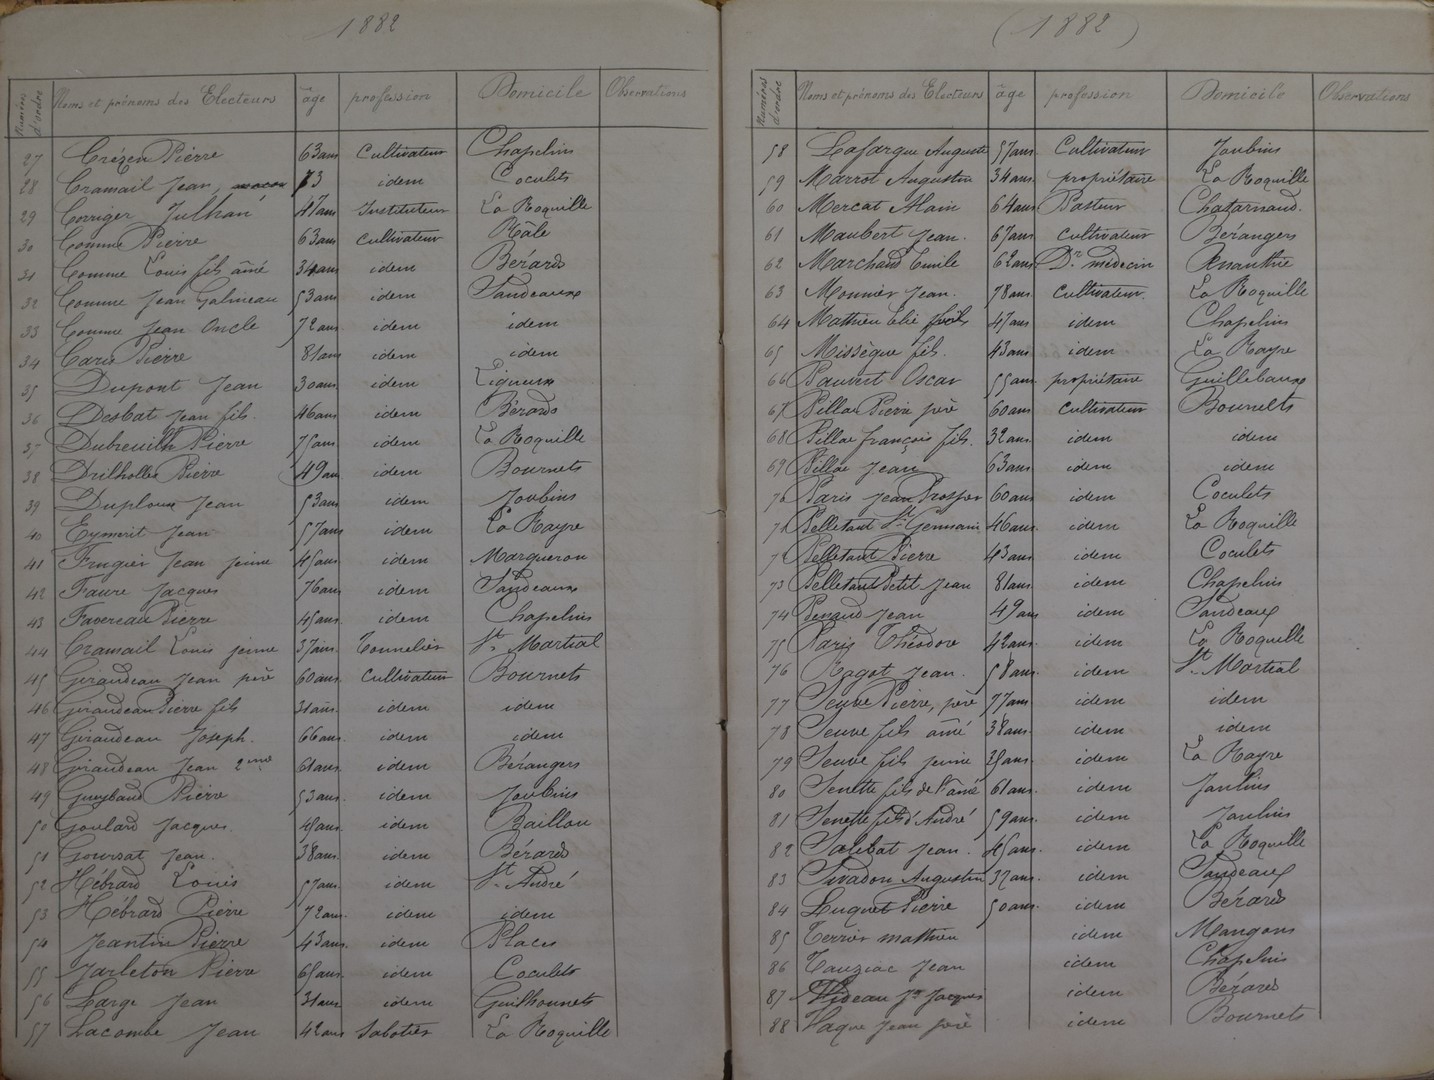 1882
Numéros d'ordre Noms et prénoms des Electeurs âge profession Domicile Observations
27 Crézen Pierre 63 ans Cultivateur Chapelins
28 Cramail Jean, 73 idem Coculets
29 Corriger Julhan 47 ans Instituteur La Roquille
30 Comme Pierre 63 ans cultivateur Râle
31 Comme Louis fils aîné 34 ans idem Bérards
32 Comme Jean Galineau 53 ans idem Sandeaux
33 Comme Jean Oncle 72 ans idem idem
34 Pierre 81 ans idem idem
35 Dupont Jean 30 ans idem Ligueux
36 Desbat Jean fils. 46 ans idem Bérards
37 Dubreuilh Pierre 75 ans idem La Roquille
38 Drilholles Pierre 49 ans idem Bournets
39 Duploux Jean 53 ans idem Joubins
40 Eymerit Jean 57 ans idem La Rayre
41 Frugier Jean jeune 45 ans idem Margueron
42 Faure Jacques 76 ans idem Sandeaux
43 Favereau Pierre 45 ans idem Chapelins
44 Cramail Louis jeune 37 ans Tonnelier St. Martial
45 Giraudeau Jean père 60 ans Cultivateur Bournets
46 Giraudeau Pierre fils 31 ans idem idem
47 Giraudeau Joseph. 66 ans. idem idem
48 Giraudeau Jean 2me 61 ans idem Bérangers
49 Gueybaud Pierre 53 ans. idem Joubins
50 Goulard Jacques. idem Baillou
51 Goursat Jean. 38 ans. idem Bérards
52 Hébrard Louis 57 ans. idem St. André
53 Hébrard Pierre 72 ans. idem idem
54 Jeantin Pierre 43 ans. idem Places
55 Jarleton Pierre 65 ans. idem Coculets
56 Large Jean 31 ans idem Guilhonnets
57 Lacombe Jean 42 ans Sabotier La Roquille
(1882)
Numéros d'ordre Noms et prénoms des Electeurs âge profession Domicile Observations
58 Lafargue Auguste 57 ans Cultivateur Joubins
59 Marrot Augustin 34 ans. propriétaire La Roquille
60 Mercat Alain 64 ans Pasteur Chatarnaud.
61 Maubert Jean. 67 ans cultivateur Bérangers
62 Marchand Emile 62 ans Dr. médecin Ananthie
63 Monnier Jean. 78 ans. Cultivateur. La Roquille
64 Mathieu Elie fils 47 ans idem Chapelins
65 Missèque fils. 43 ans. idem La Rayre
66 Pauvert Oscar 55 ans. propriétaire Guillebaux
67 Pillac Pierre père 60 ans cultivateur Bournets
68 Pillac françois fils. 32 ans. idem idem
69 Pillac Jean 63 ans idem idem
70 Paris Jean Prosper 60 ans idem Coculets
71 Pelletant St. Germain 46 ans. idem La Roquille
72 Pelletant Pierre 43 ans idem Coculets
73 Pelletant Petit Jean 81 ans idem Chapelins
74 Penaud Jean 49 ans idem Sandeaux
75 Paris Théodore 42 ans. idem La Roquille
76 Ragot Jean. 58 ans. idem St. Martial
77 Seuve Pierre, père 77 ans idem idem
78 Seuve fils aîné 38 ans. idem idem
79 Seuve fils jeune idem La Rayre
80 Senette fils de l'aîné 61 ans idem Joubins
81 Senette fils d'André 59 ans. idem Joubins
82 Salebat Jean. 45 ans. idem La Roquille
83 Sivadon Augustin 37 ans. idem Sandeaux
84 Luquet Pierre 50 ans. idem Bérards
85 Terrier mathieu idem Mangons
86 Tauziac Jean idem Chapelins
87 Videau Jn Jacques idem Bérards
88 Vaque Jean père idem Bournets